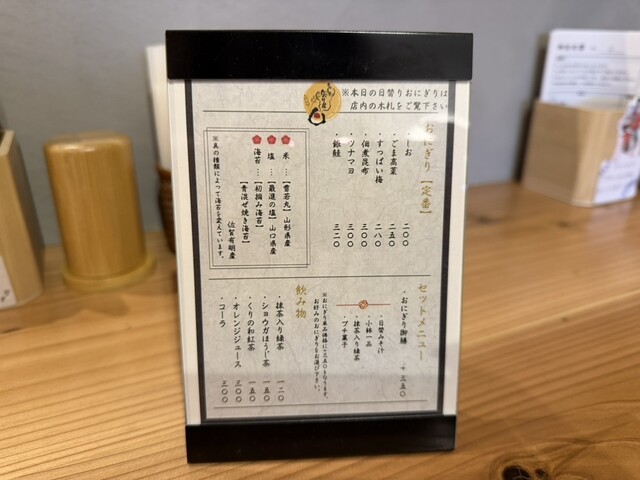 ※本日の日替りおにぎりは
店内の木札をご覧下さい
おにぎり【定番】
・しお 二〇〇
・ごま高菜 二五〇
・すっぱい梅 二八〇
・佃煮昆布 三〇〇
・ツナマヨ 三〇〇
・銀鮭 三二〇
米…【雪若丸】山形県産
塩…【最進の塩】山口県産
海苔…【初摘み海苔】
【青混ぜ焼き海苔】
佐賀有明産
※具の種類によって海苔を変えています。
セットメニュー
・おにぎり御膳 +三五〇
・日替みそ汁
・小鉢一品
・抹茶入り緑茶
・プチ菓子
※おにぎり単品価格に+三五〇となります。
お好みのおにぎりをお選び下さい。
飲み物
・抹茶入り緑茶 一二〇
・ショウガほうじ茶 一五〇
・くりの和紅茶 一五〇
・オレンジジュース 三〇〇
・コーラ 三〇〇